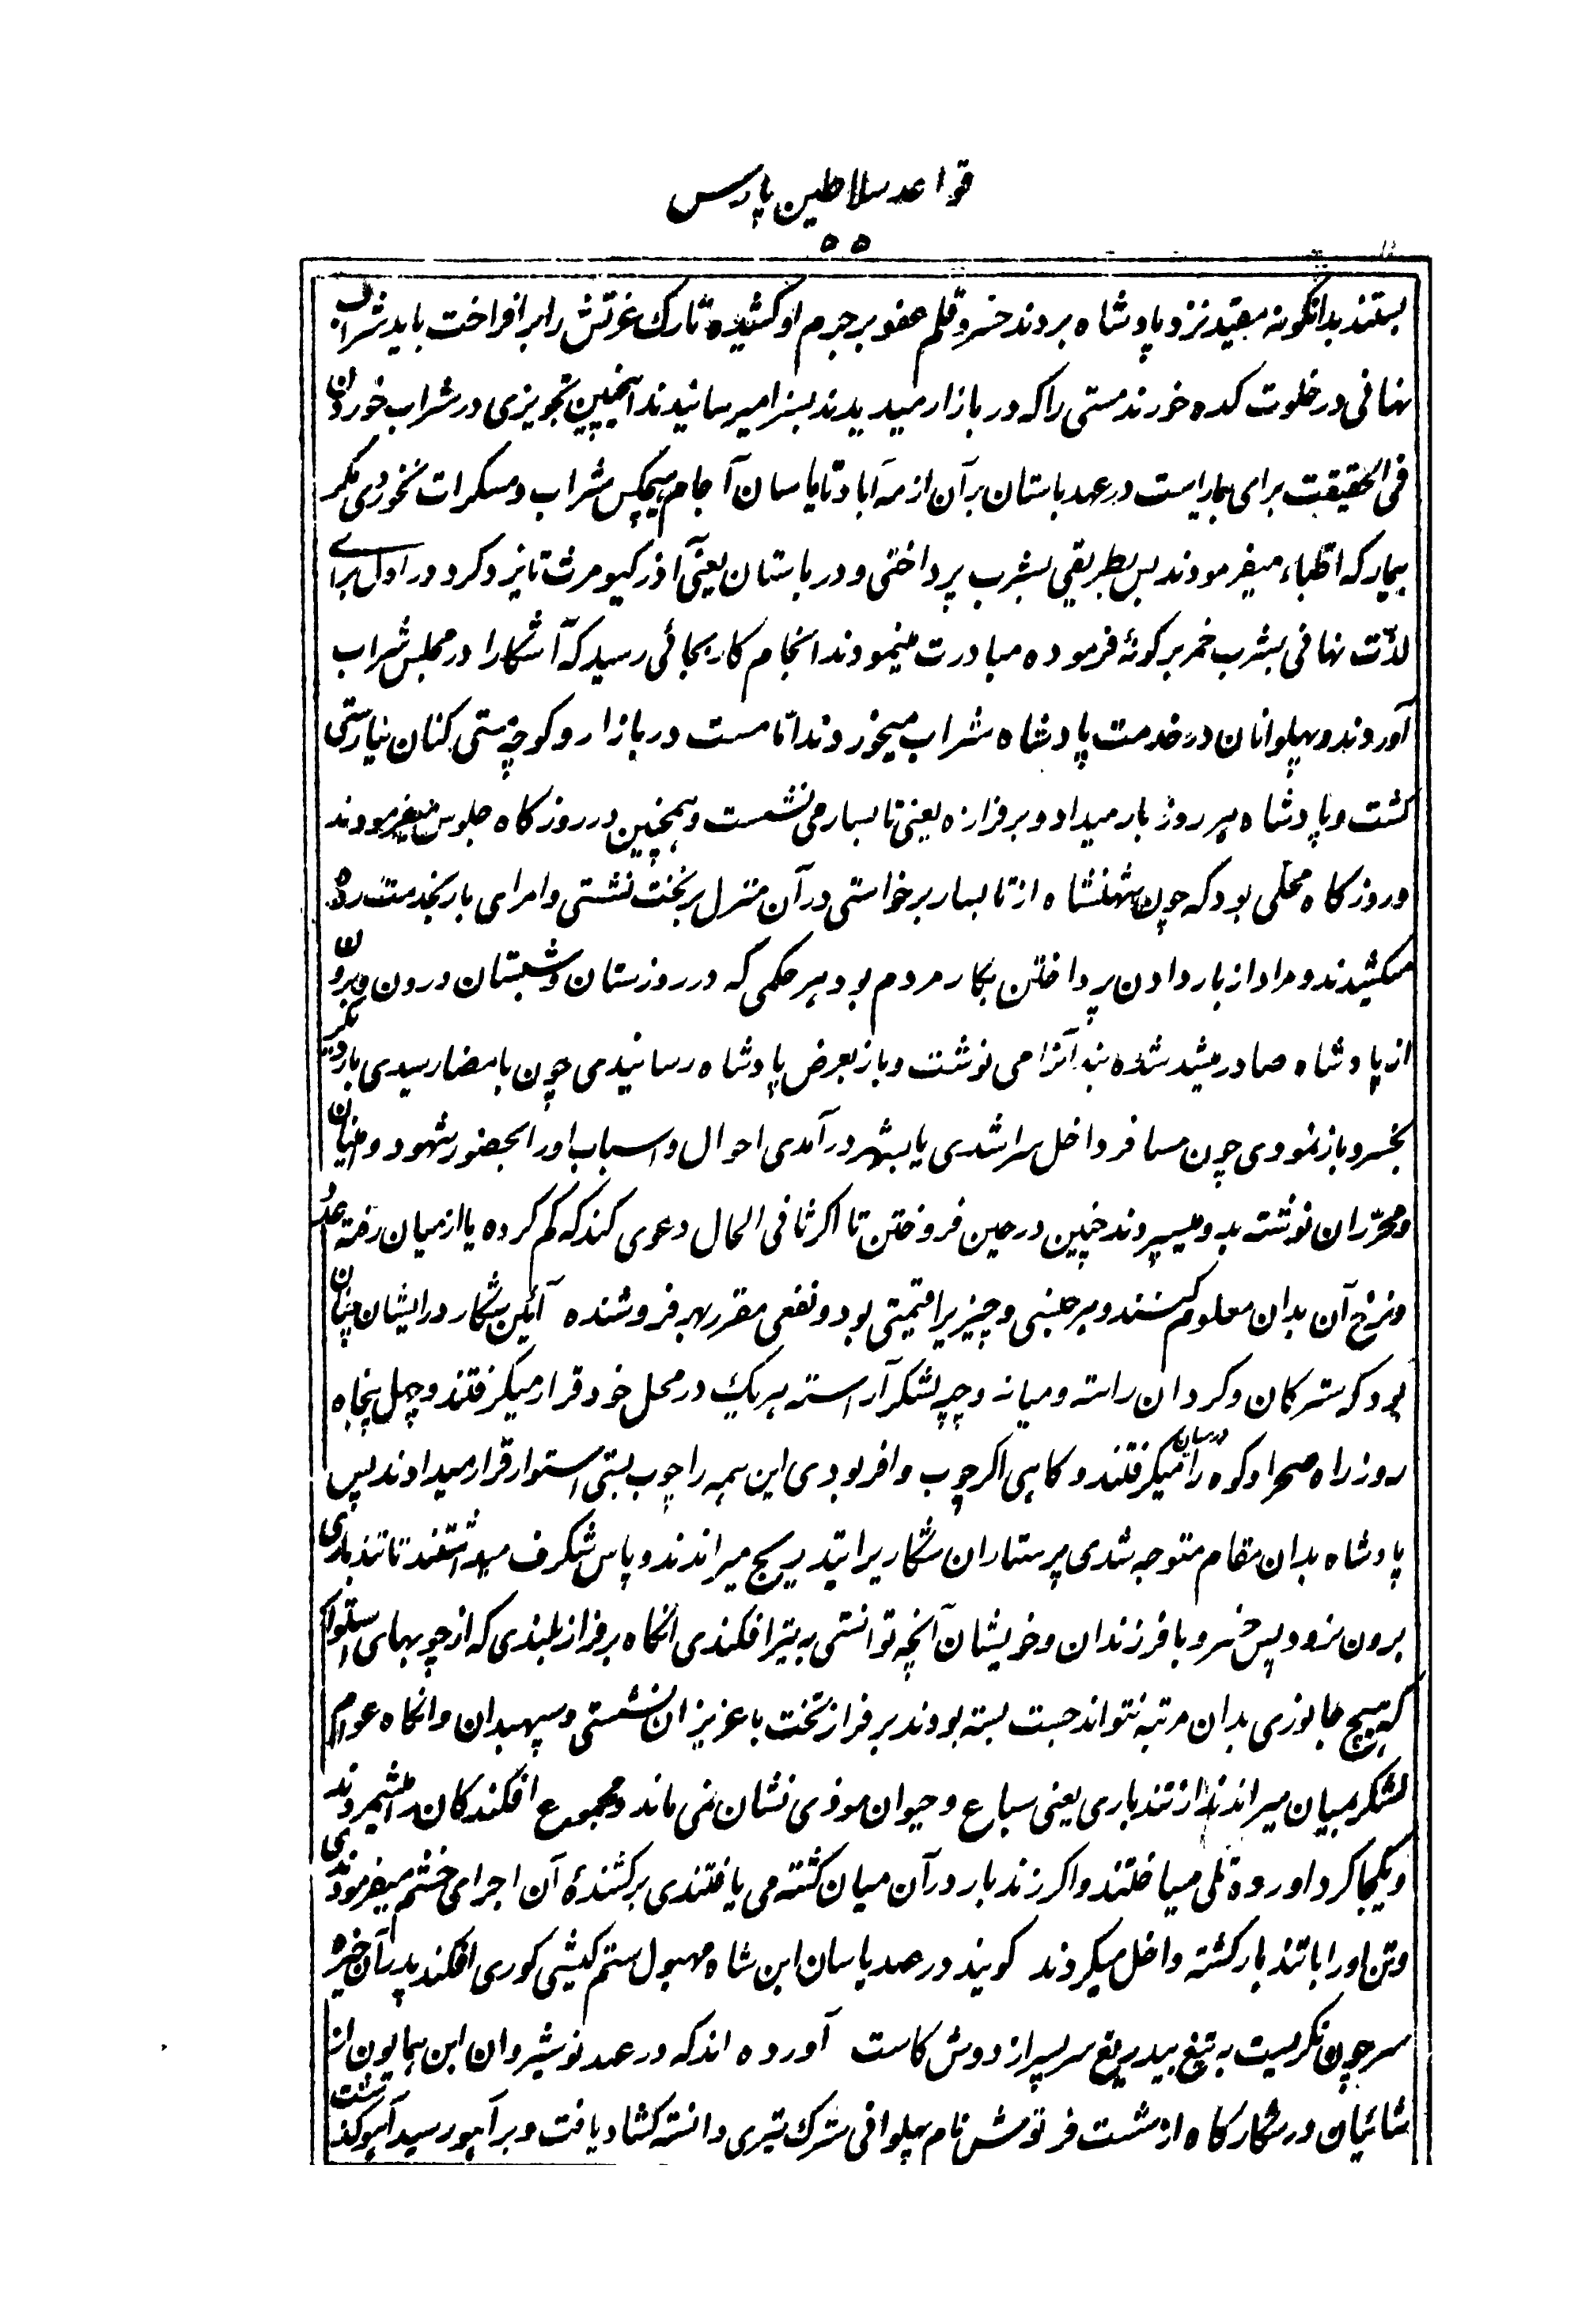 قواعد سلاطین پارس
۵۵
بستند بدانگونه مقید نزد پادشاه بردند خسرو قلم عفو بر جرم او کشیده تارک عزتش را بر افراخت باید شراب
نهانی در خلوت کده خورند مستی را که در بازار میدیدند بسزا میرسانیدند اینچنین تجویزی در شراب خوردن
فی الحقیقت برای بیماریست در عهد باستان بر آن از مه آباد تا یاسان آجام هیچکس شراب و مسکرات نخوردی مگر
بیمار که اطباء میفرمودند پس بطریقی بشرب پرداختی و در باستان یعنی آذر کیومرث تا یزدکرد در اول برای
لذت نهانی بشرب خمر بر گونهٔ فرموده مبادرت مینمودند انجام کار بجائی رسید که آشکارا در مجلس شراب
آوردند و پهلوانان در خدمت پادشاه شراب میخوردند اما مست در بازار و کوچه مستی کنان نیارستی
گشت و پادشاه هر روز بار میداد و بر فرازه یعنی تابسار می نشست و همچنین در روزکاه جلوس میفرمودند
و روزکاه محلی بود که چون شهنشاه از تابسار برخواستی در آن منزل بر تخت نشستی و امرای بار بخدمت رده
میکشیدند و مراد از بار دادن پرداختن بکار مردم بود هر حکمی که در روزستان و شبستان درون و برون
از پادشاه صادر میشد شده بند آنرا می نوشت و باز بعرض پادشاه رسانیدی چون بامضا رسیدی بار دیگر
بخسرو باز نمودی چون مسافر داخل سرا شدی یا بشهر در آمدی احوال و اسباب او را بحضور شهود و منهیان
و محرران نوشته بدو میسپردند چنین در حین فروختن تا اگر ثانی الحال دعوی کند که گم کرده یا از میان رفته عدد
و نرخ آن بدان معلوم کنند و هر جنسی و چیزیرا قیمتی بود و نفعی مقرر بهر فروشنده آئین شکار در ایشان چنان
بود که سترکان و گردان راسته و میانه و چپ لشکر آراسته هر یک در محل خود قرار میگرفتند و چهل پنجاه
روز راه صحرا و کوه را درمیان میگرفتند و گاهی اگر چوب وافر بودی این همه را چوب بستی استوار قرار میدادند پس
پادشاه بدان مقام متوجه شدی پرستاران شکاریرا بتدریج میراندند و پاس شگرف میداشتند تا تندباری
برون نرود پس خسرو با فرزندان و خویشان آنچه توانستی به تیر افکندی آنگاه بر فراز بلندی که از چوبهای استوار
که هیچ جانوری بدان مرتبه نتواند جست بسته بودند بر فراز تخت با عزیزان نشستی و سپهبدان و آنگاه عوام
لشکر بمیان میراندند از تندباری یعنی سباع و حیوان موذی نشان نمی ماند و مجموع افکندگان را میشمردند
و یکجا گرد آورده تلی میساختند و اگر زند بار در آن میان کشته می یافتندی بر کشندهٔ آن اجرای خشم میفرمودندی
و تن او را با تندبار کشته داخل میکردند گویند در عهد یاسان ابن شاه مهبول ستم کیشی گوری افکند پدر آن خیره
سر چون نگریست به تیغ بیدریغ سر پسر از دوش کاست آورده اند که در عهد نوشیروان ابن همایون از
شائیان در شکارگاه از شست فرتوش نام پهلوانی سترک تیری دانسته گشاد یافت و بر آهو رسید آهو گذشت